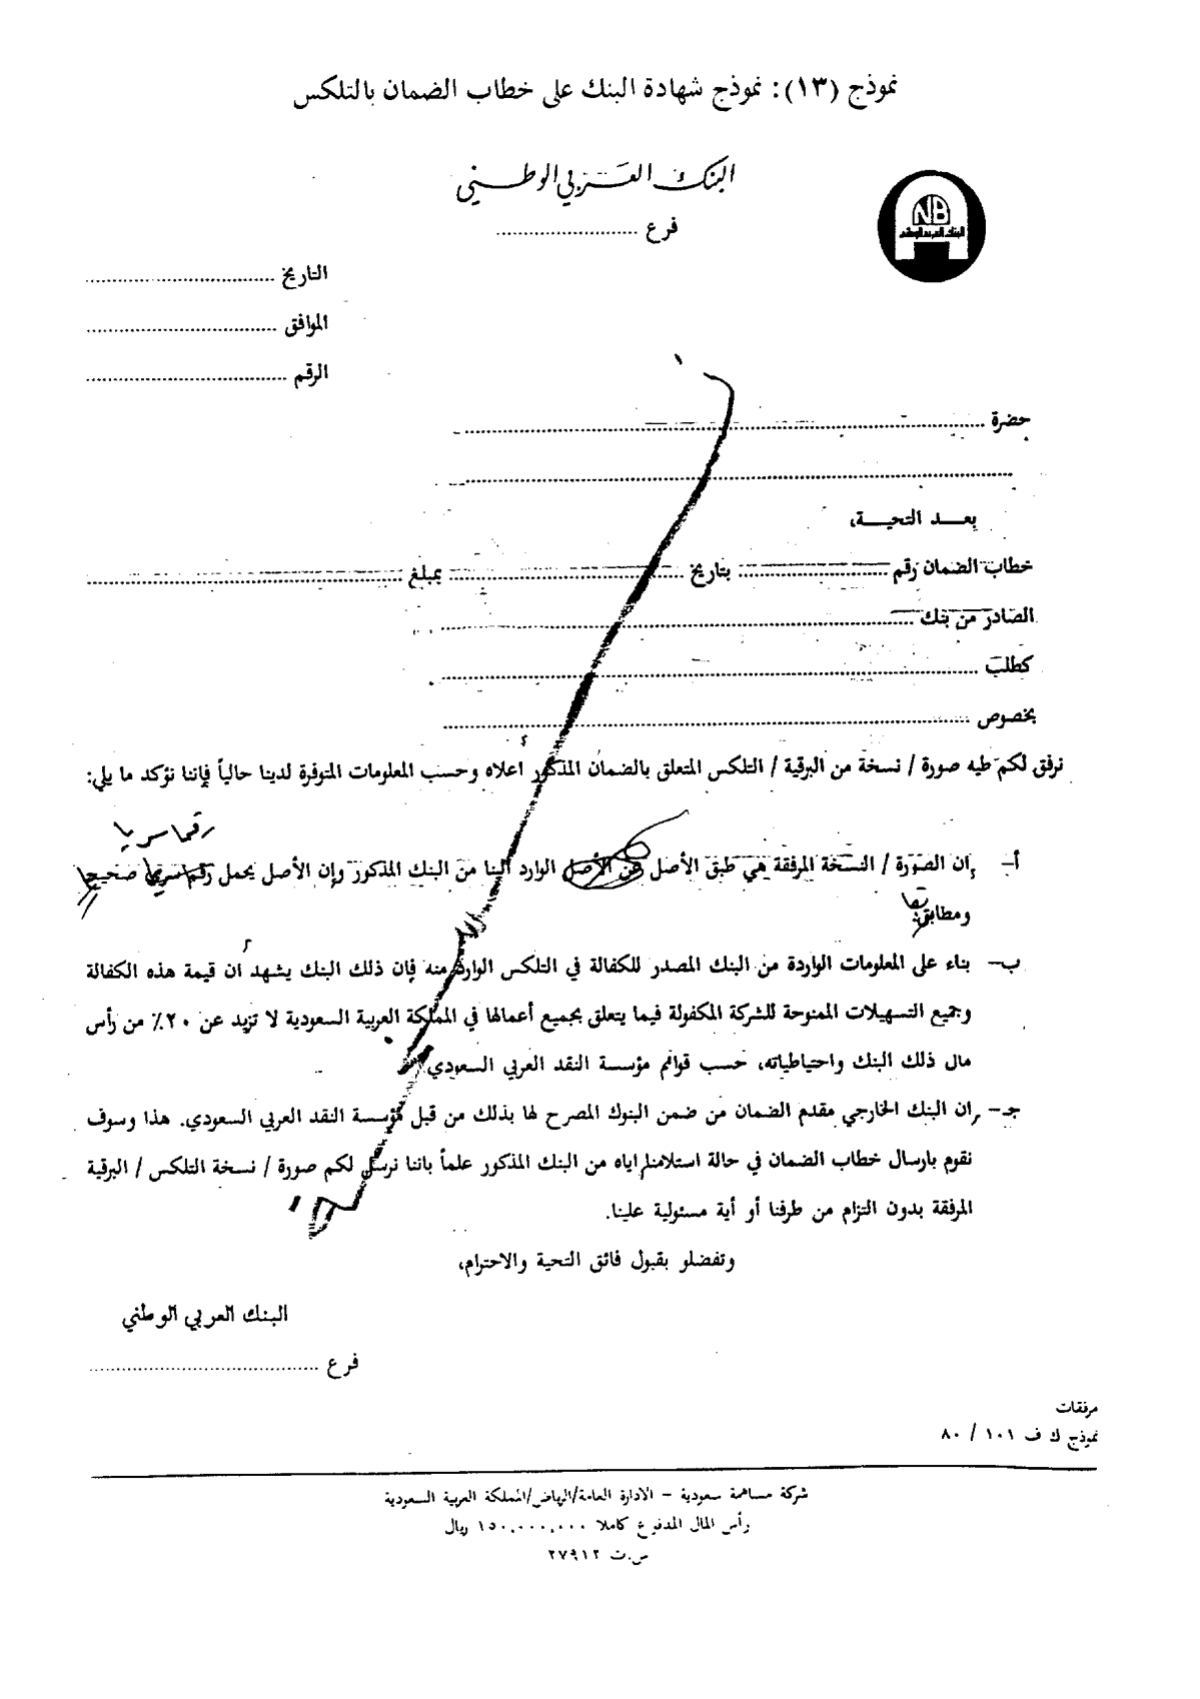 نموذج (١٣): نموذج شهادة البنك على خطاب الضمان بالتلكس
البنك العربي الوطني
NB
البنك العربي الوطني
فرع ........................
التاريخ ................................
الموافق ................................
الرقم ................................
حضرة ................................................................
................................................................
بعد التحية،
خطاب الضمان رقم ........................ بتاريخ ........................ بمبلغ ................................................
الصادر من بنك ................................................................
كطلب ................................................................
بخصوص ................................................................
نرفق لكم طيه صورة / نسخة من البرقية / التلكس المتعلق بالضمان المذكور أعلاه وحسب المعلومات المتوفرة لدينا حالياً فإننا نؤكد ما يلي:
رقما سريا
أ- إن الصورة / النسخة المرفقة هي طبق الأصل من الأصل الوارد الينا من البنك المذكور وإن الأصل يحمل رقم سري صحيح
ومطابق.
ب- بناء على المعلومات الواردة من البنك المصدر للكفالة في التلكس الوارد منه فإن ذلك البنك يشهد أن قيمة هذه الكفالة
وجميع التسهيلات الممنوحة للشركة المكفولة فيما يتعلق بجميع أعمالها في المملكة العربية السعودية لا تزيد عن ٢٠٪ من رأس
مال ذلك البنك واحتياطياته، حسب قوائم مؤسسة النقد العربي السعودي.
جـ- إن البنك الخارجي مقدم الضمان من ضمن البنوك المصرح لها بذلك من قبل مؤسسة النقد العربي السعودي. هذا وسوف
نقوم بارسال خطاب الضمان في حالة استلامنا إياه من البنك المذكور علماً باننا نرسل لكم صورة / نسخة التلكس / البرقية
المرفقة بدون التزام من طرفنا أو أية مسئولية علينا.
وتفضلو بقبول فائق التحية والاحترام،
البنك العربي الوطني
فرع ................................
مرفقات
نموذج ك ف ١٠١ / ٨٠
شركة مساهمة سعودية - الادارة العامة/الرياض/المملكة العربية السعودية
رأس المال المدفوع كاملا ١٥٠,٠٠٠,٠٠٠ ريال
س.ت ٢٧٩١٢